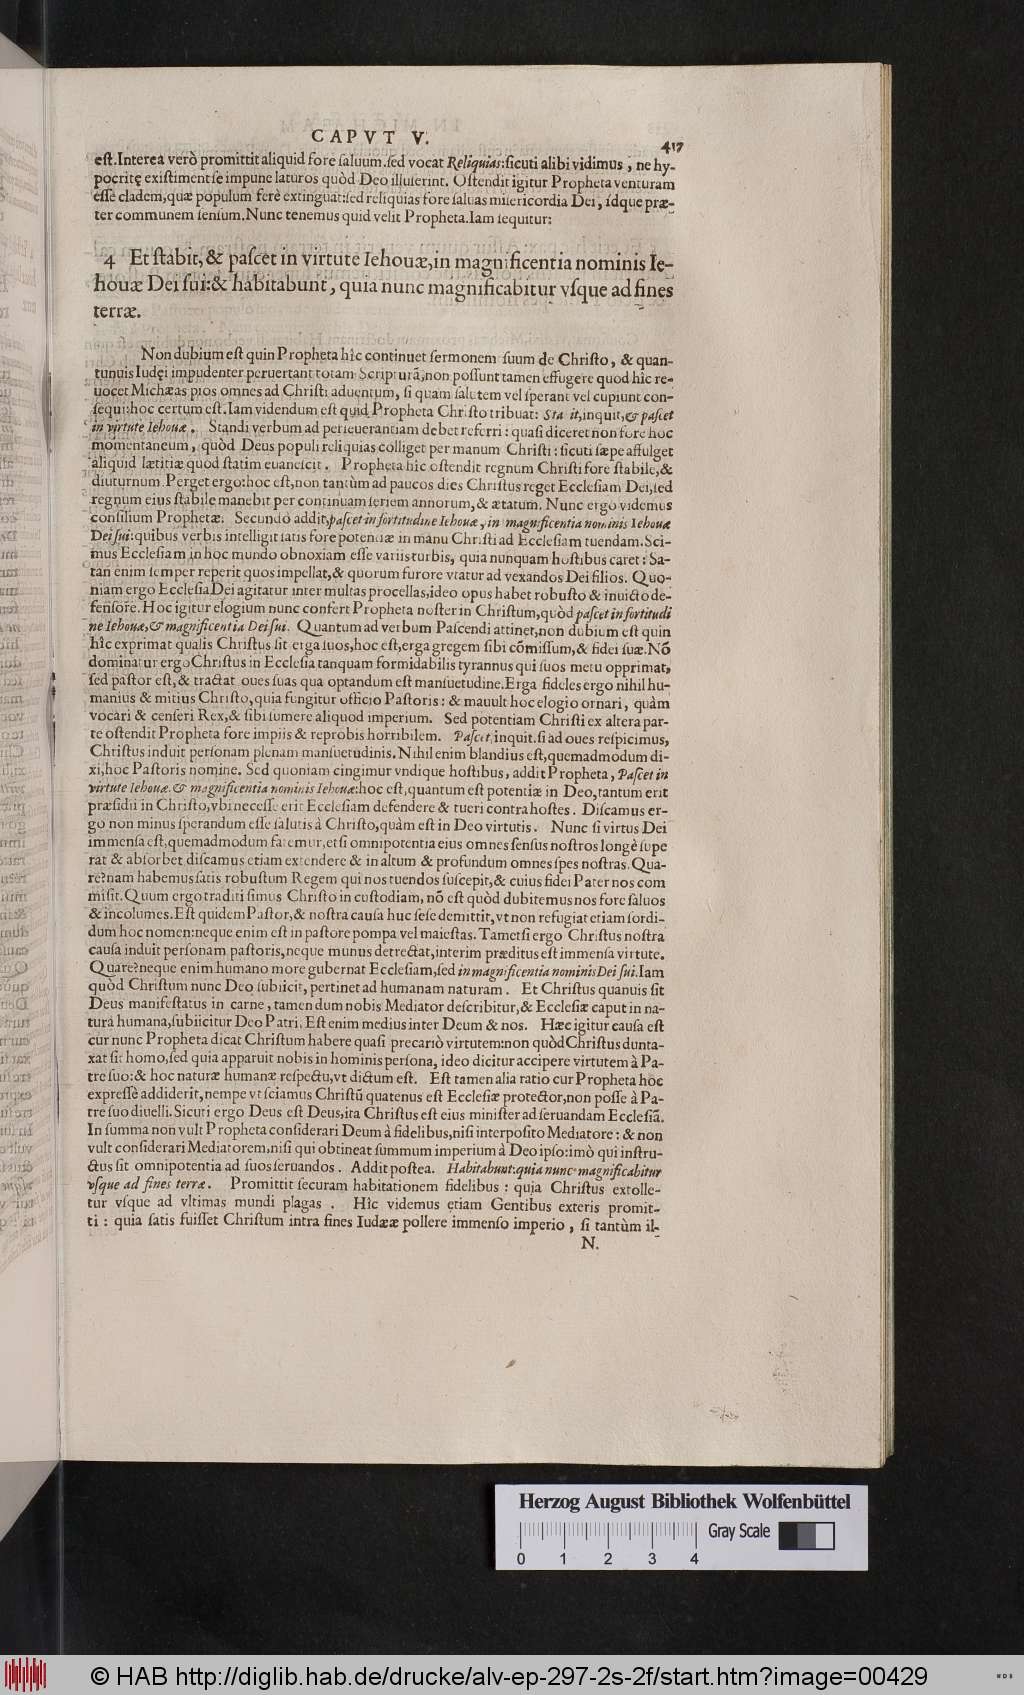 CAPVT V. 417
eſt. Interea verò promittit aliquid fore ſaluum. ſed vocat Reliquias: ſicuti alibi vidimus, ne hy-
pocritę exiſtiment ſe impune laturos quòd Deo illuſerint. Oſtendit igitur Propheta venturam
eſſe cladem, quæ populum ferè extinguat: ſed reliquias fore ſaluas miſericordia Dei, idque præ-
ter communem ſenſum. Nunc tenemus quid velit Propheta. Iam ſequitur:
4 Et ſtabit, & paſcet in virtute Iehouæ, in magnificentia nominis Ie-
houæ Dei ſui: & habitabunt, quia nunc magnificabitur vſque ad fines
terræ.
Non dubium eſt quin Propheta hîc continuet ſermonem ſuum de Chriſto, & quan-
tunuis Iudęi impudenter peruertant totam Scripturã, non poſſunt tamen effugere quod hîc re-
uocet Michæas pios omnes ad Chriſti aduentum, ſi quam ſalutem vel ſperant vel cupiunt con-
ſequi: hoc certum eſt. Iam videndum eſt quid Propheta Chriſto tribuat: Sta it, inquit, & paſcet
in virtute Iehouæ. Standi verbum ad perſeuerantiam debet referri: quaſi diceret non fore hoc
momentaneum, quòd Deus populi reliquias colliget per manum Chriſti: ſicuti ſæpe affulget
aliquid lætitiæ quod ſtatim euaneſcit. Propheta hîc oſtendit regnum Chriſti fore ſtabile, &
diuturnum. Perget ergo: hoc eſt, non tantùm ad paucos dies Chriſtus reget Eccleſiam Dei, ſed
regnum eius ſtabile manebit per continuam ſeriem annorum, & ætatum. Nunc ergo videmus
conſilium Prophetæ. Secundò addit, paſcet in fortitudine Iehouæ, in magnificentia nominis Iehouæ
Dei ſui: quibus verbis intelligit ſatis fore potentiæ in manu Chriſti ad Eccleſiam tuendam. Sci-
mus Eccleſiam in hoc mundo obnoxiam eſſe variis turbis, quia nunquam hoſtibus caret: Sa-
tan enim ſemper reperit quos impellat, & quorum furore vtatur ad vexandos Dei filios. Quo-
niam ergo Eccleſia Dei agitatur inter multas procellas, ideo opus habet robuſto & inuicto de-
fenſore. Hoc igitur elogium nunc confert Propheta noſter in Chriſtum, quòd paſcet in fortitudi
ne Iehouæ, & magnificentia Dei ſui. Quantum ad verbum Paſcendi attinet, non dubium eſt quin
hîc exprimat qualis Chriſtus ſit erga ſuos, hoc eſt, erga gregem ſibi cõmiſſum, & fidei ſuæ. Nõ
dominatur ergo Chriſtus in Eccleſia tanquam formidabilis tyrannus qui ſuos metu opprimat,
ſed paſtor eſt, & tractat oues ſuas qua optandum eſt manſuetudine. Erga fideles ergo nihil hu-
manius & mitius Chriſto, quia fungitur officio Paſtoris: & mauult hoc elogio ornari, quàm
vocari & cenſeri Rex, & ſibi ſumere aliquod imperium. Sed potentiam Chriſti ex altera par-
te oſtendit Propheta fore impiis & reprobis horribilem. Paſcet, inquit. ſi ad oues reſpicimus,
Chriſtus induit perſonam plenam manſuetudinis. Nihil enim blandius eſt, quemadmodum di-
xi, hoc Paſtoris nomine. Sed quoniam cingimur vndique hoſtibus, addit Propheta, Paſcet in
virtute Iehouæ. & magnificentia nominis Iehouæ: hoc eſt, quantum eſt potentiæ in Deo, tantum erit
præſidii in Chriſto, vbi neceſſe erit Eccleſiam defendere & tueri contra hoſtes. Diſcamus er-
go non minus ſperandum eſſe ſalutis à Chriſto, quàm eſt in Deo virtutis. Nunc ſi virtus Dei
immenſa eſt, quemadmodum fatemur, etſi omnipotentia eius omnes ſenſus noſtros longè ſupe
rat & abſorbet diſcamus etiam extendere & in altum & profundum omnes ſpes noſtras. Qua-
re? nam habemus ſatis robuſtum Regem qui nos tuendos ſuſcepit, & cuius fidei Pater nos com
miſit. Quum ergo traditi ſimus Chriſto in cuſtodiam, nõ eſt quòd dubitemus nos fore ſaluos
& incolumes. Eſt quidem Paſtor, & noſtra cauſa huc ſeſe demittit, vt non refugiat etiam ſordi-
dum hoc nomen: neque enim eſt in paſtore pompa vel maieſtas. Tametſi ergo Chriſtus noſtra
cauſa induit perſonam paſtoris, neque munus detrectat, interim præditus eſt immenſa virtute.
Quare? neque enim humano more gubernat Eccleſiam, ſed in magnificentia nominis Dei ſui. Iam
quòd Chriſtum nunc Deo ſubiicit, pertinet ad humanam naturam. Et Chriſtus quanuis ſit
Deus manifeſtatus in carne, tamen dum nobis Mediator deſcribitur, & Eccleſiæ caput in na-
tura humana, ſubiicitur Deo Patri. Eſt enim medius inter Deum & nos. Hæc igitur cauſa eſt
cur nunc Propheta dicat Chriſtum habere quaſi precariò virtutem: non quòd Chriſtus dunta-
xat ſit homo, ſed quia apparuit nobis in hominis perſona, ideo dicitur accipere virtutem à Pa-
tre ſuo: & hoc naturæ humanæ reſpectu, vt dictum eſt. Eſt tamen alia ratio cur Propheta hoc
expreſſè addiderit, nempe vt ſciamus Chriſtũ quatenus eſt Eccleſiæ protector, non poſſe à Pa-
tre ſuo diuelli. Sicuti ergo Deus eſt Deus, ita Chriſtus eſt eius miniſter ad ſeruandam Eccleſiã.
In ſumma non vult Propheta conſiderari Deum à fidelibus, niſi interpoſito Mediatore: & non
vult conſiderari Mediatorem, niſi qui obtineat ſummum imperium à Deo ipſo: imò qui inſtru-
ctus ſit omnipotentia ad ſuos ſeruandos. Addit poſtea. Habitabunt: quia nunc magnificabitur
vſque ad fines terræ. Promittit ſecuram habitationem fidelibus: quia Chriſtus extolle-
tur vſque ad vltimas mundi plagas. Hîc videmus etiam Gentibus exteris promit-
ti: quia ſatis fuiſſet Chriſtum intra fines Iudææ pollere immenſo imperio, ſi tantùm il-
N.
Herzog August Bibliothek Wolfenbüttel
Gray Scale
0 1 2 3 4
© HAB http://diglib.hab.de/drucke/alv-ep-297-2s-2f/start.htm?image=00429